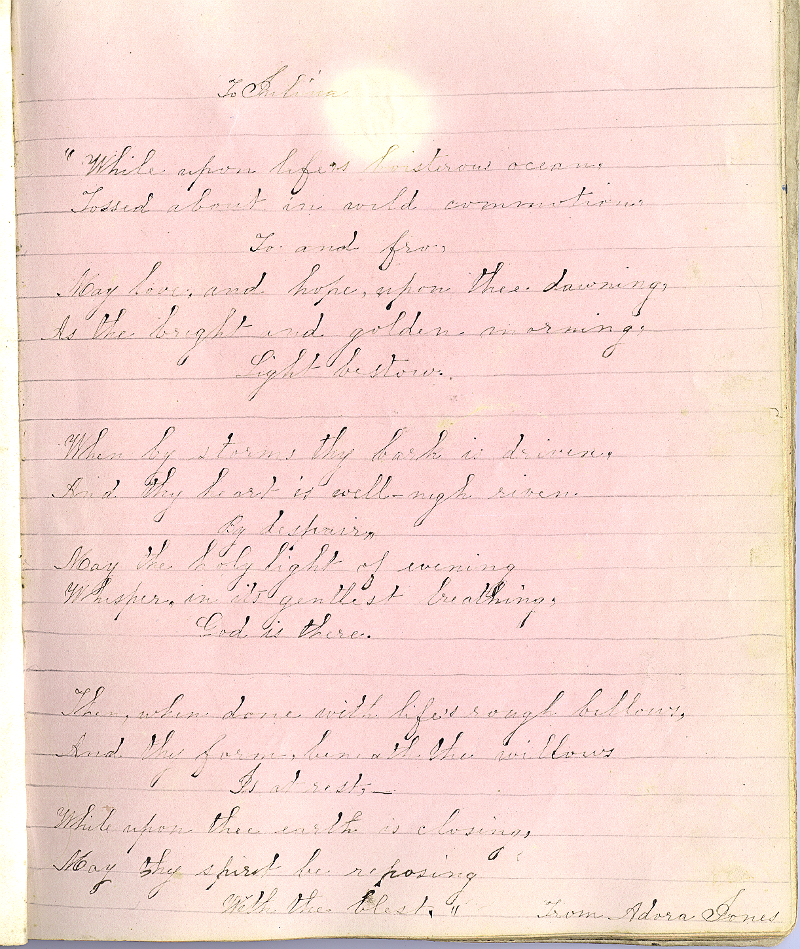 To
"While upon life's boisterous ocean,
Tossed about in wild commotion,
To and fro,
May love, and hope, upon thee dawning,
As the bright and golden morning,
Light bestow.
When by storms thy bark is driven,
And thy heart is well-nigh riven
By despair,
May the holy light of evening
Whisper, in its gentlest breathing,
God is there.
Then, when done with life's rough billows,
And thy form, beneath the willows
Is at rest,—
While upon thee earth is closing,
May thy spirit be reposing
With the blest."
From Adora Jones